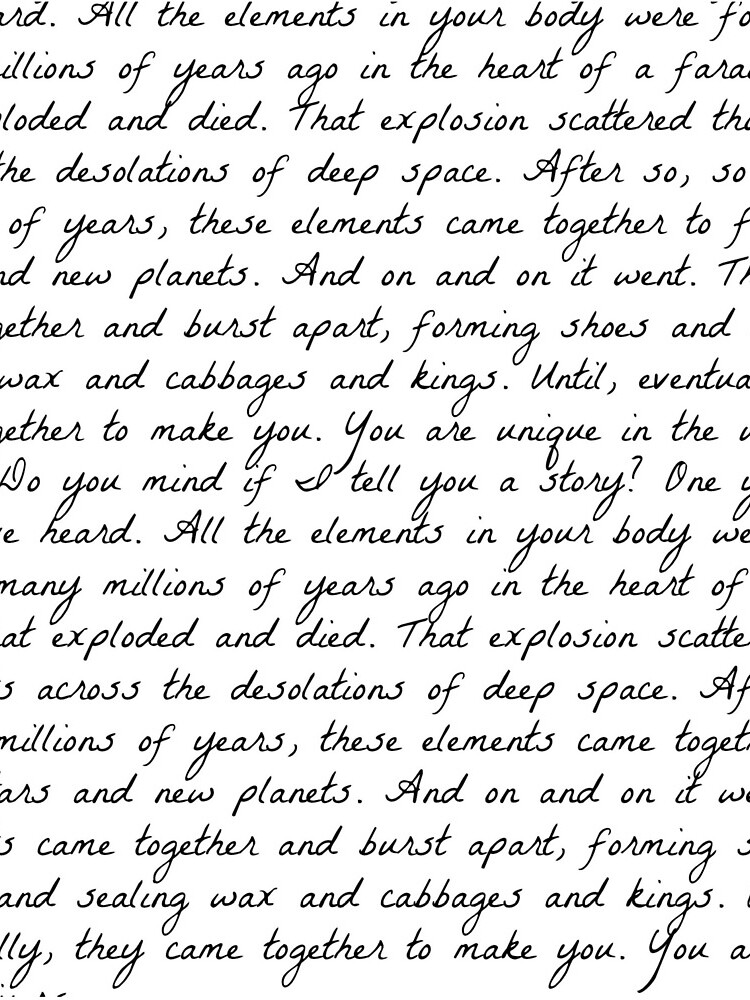 ard. All the elements in your body were fo
illions of years ago in the heart of a fara
loded and died. That explosion scattered th
the desolations of deep space. After so, so
of years, these elements came together to f
nd new planets. And on and on it went. Th
gether and burst apart, forming shoes and
wax and cabbages and kings. Until, eventua
gether to make you. You are unique in the
Do you mind if I tell you a story? One y
ve heard. All the elements in your body we
many millions of years ago in the heart of
hat exploded and died. That explosion scatte
s across the desolations of deep space. Af
millions of years, these elements came togeth
tars and new planets. And on and on it we
s came together and burst apart, forming s
and sealing wax and cabbages and kings.
lly, they came together to make you. You a